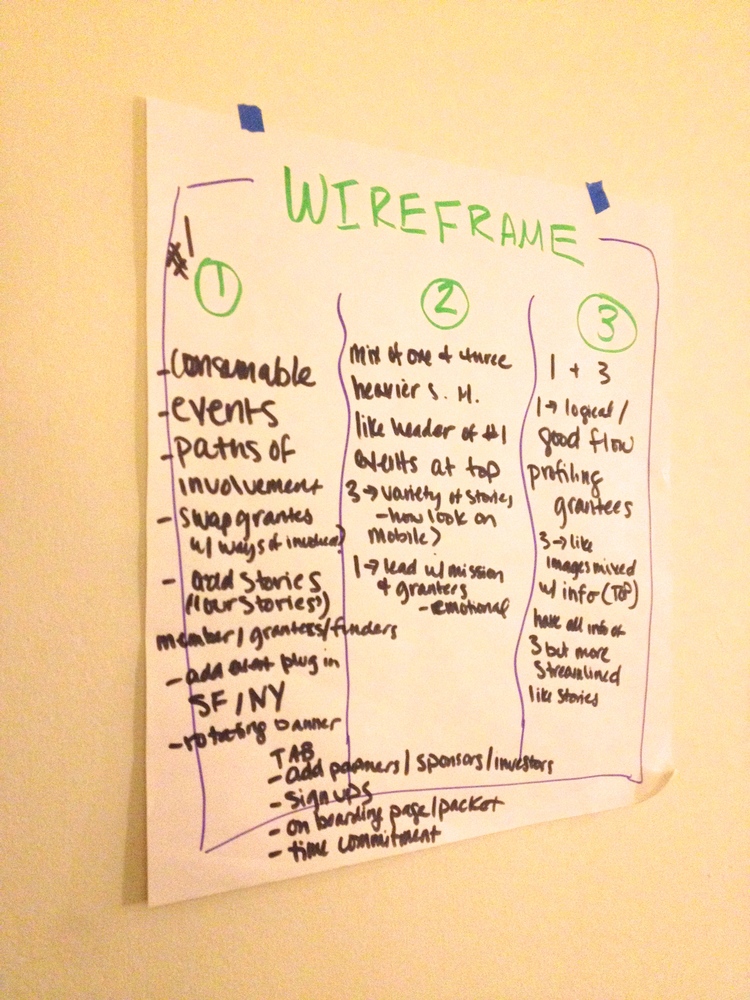 WIREFRAME
#1
1
- consumable
- events
- paths of
involvement
- swap grantes
w/ ways of involved)
- add stories
("our stories")
member/granters/funders
- add event plug in
SF/NY
- rotating banner
TAB
- add partners/sponsors/investors
- sign ups
- on boarding page/packet
- time commitment
2
Mix of one & three
heavier S. H.
like header of #1
events at top
3 → variety of stories
- how look on
mobile?
1 → lead w/ mission
& granters
- emotional
3
1 + 3
1 → logical/
good flow
profiling
grantees
3 → like
images mixed
w/ info (TOP)
have all info of
3 but more
streamlined
like stories